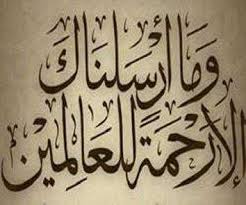 وما أرسلناك
إلا رحمة للعالمين